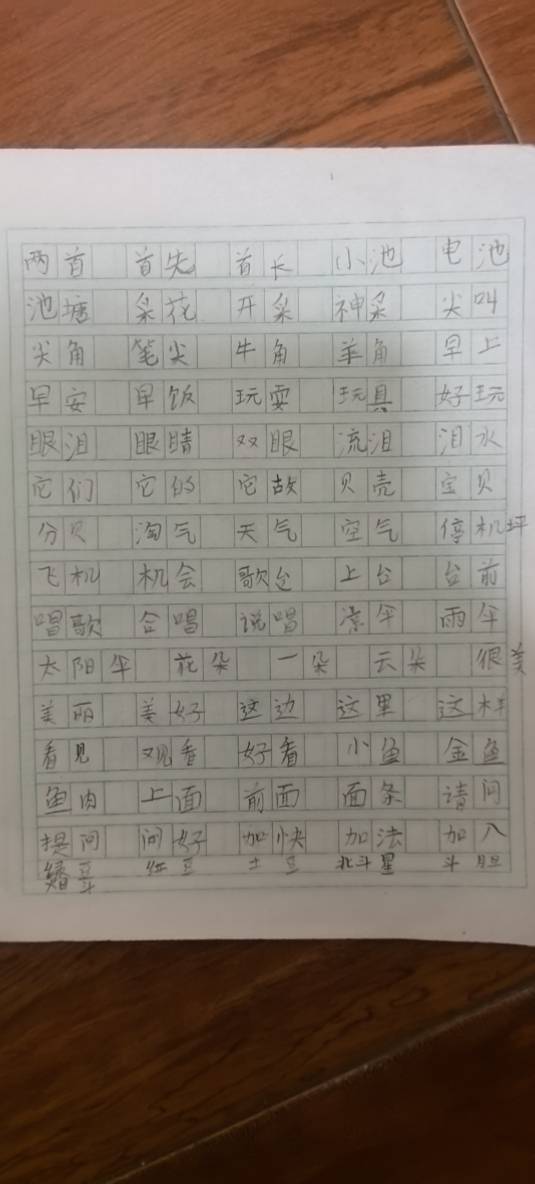 两首 首先 首长 小池 电池
池塘 采花 开采 神采 尖叫
尖角 笔尖 牛角 羊角 早上
早安 早饭 玩耍 玩具 好玩
眼泪 眼睛 双眼 流泪 泪水
它们 它的 它故 贝壳 宝贝
分贝 淘气 天气 空气 停机坪
飞机 机会 歌台 上台 台前
唱歌 合唱 说唱 凉伞 雨伞
太阳伞 花朵 一朵 云朵 很美
美丽 美好 这边 这里 这样
看见 观看 好看 小鱼 金鱼
鱼肉 上面 前面 面条 请问
提问 问好 加快 加法 加入
豆 红豆 土豆 北斗星 斗胆